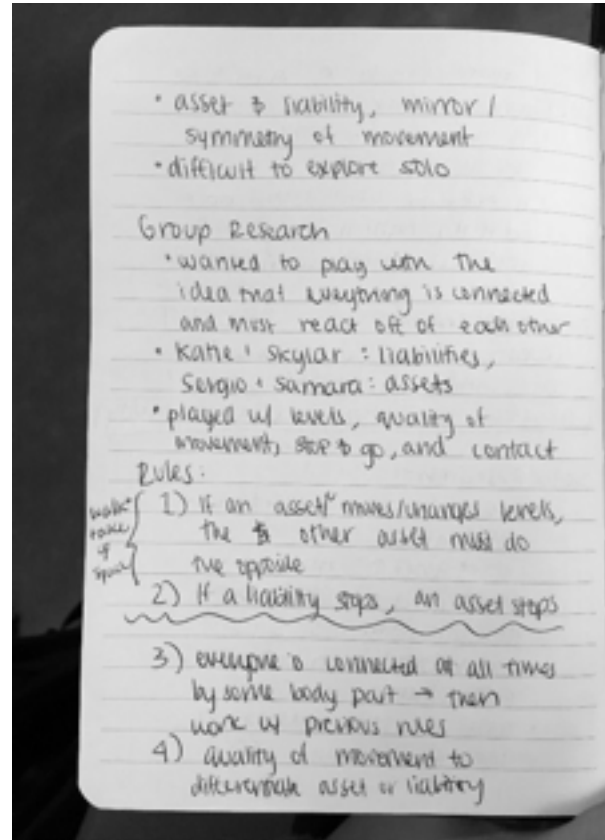 • asset & liability, mirror /
symmetry of movement
• difficult to explore solo
Group Research
• wanted to play with the
idea that everything is connected
and must react off of each other
• Katie & Skylar : liabilities,
Sergio & Samara : assets
• played w/ levels, quality of
movement, stop & go, and contact
Rules:
walk
take
of
space
1) If an asset moves/changes levels,
the other asset must do
the opposite
2) If a liability stops, an asset stops
3) everyone is connected at all times
by some body part → then
work w/ previous rules
4) quality of movement to
differentiate asset or liability